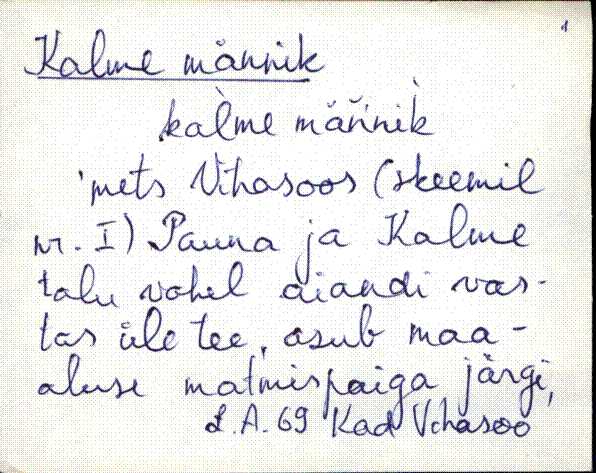 1
Kalme männik
kàlme mäǹnik
'mets Vihasoos (skeemil
nr. I) Pauna ja Kalme
talu vahel aiandi vas-
tas üle tee, asub maa-
aluse matmispaiga järgi,
L.A. 69 Kad Vihasoo